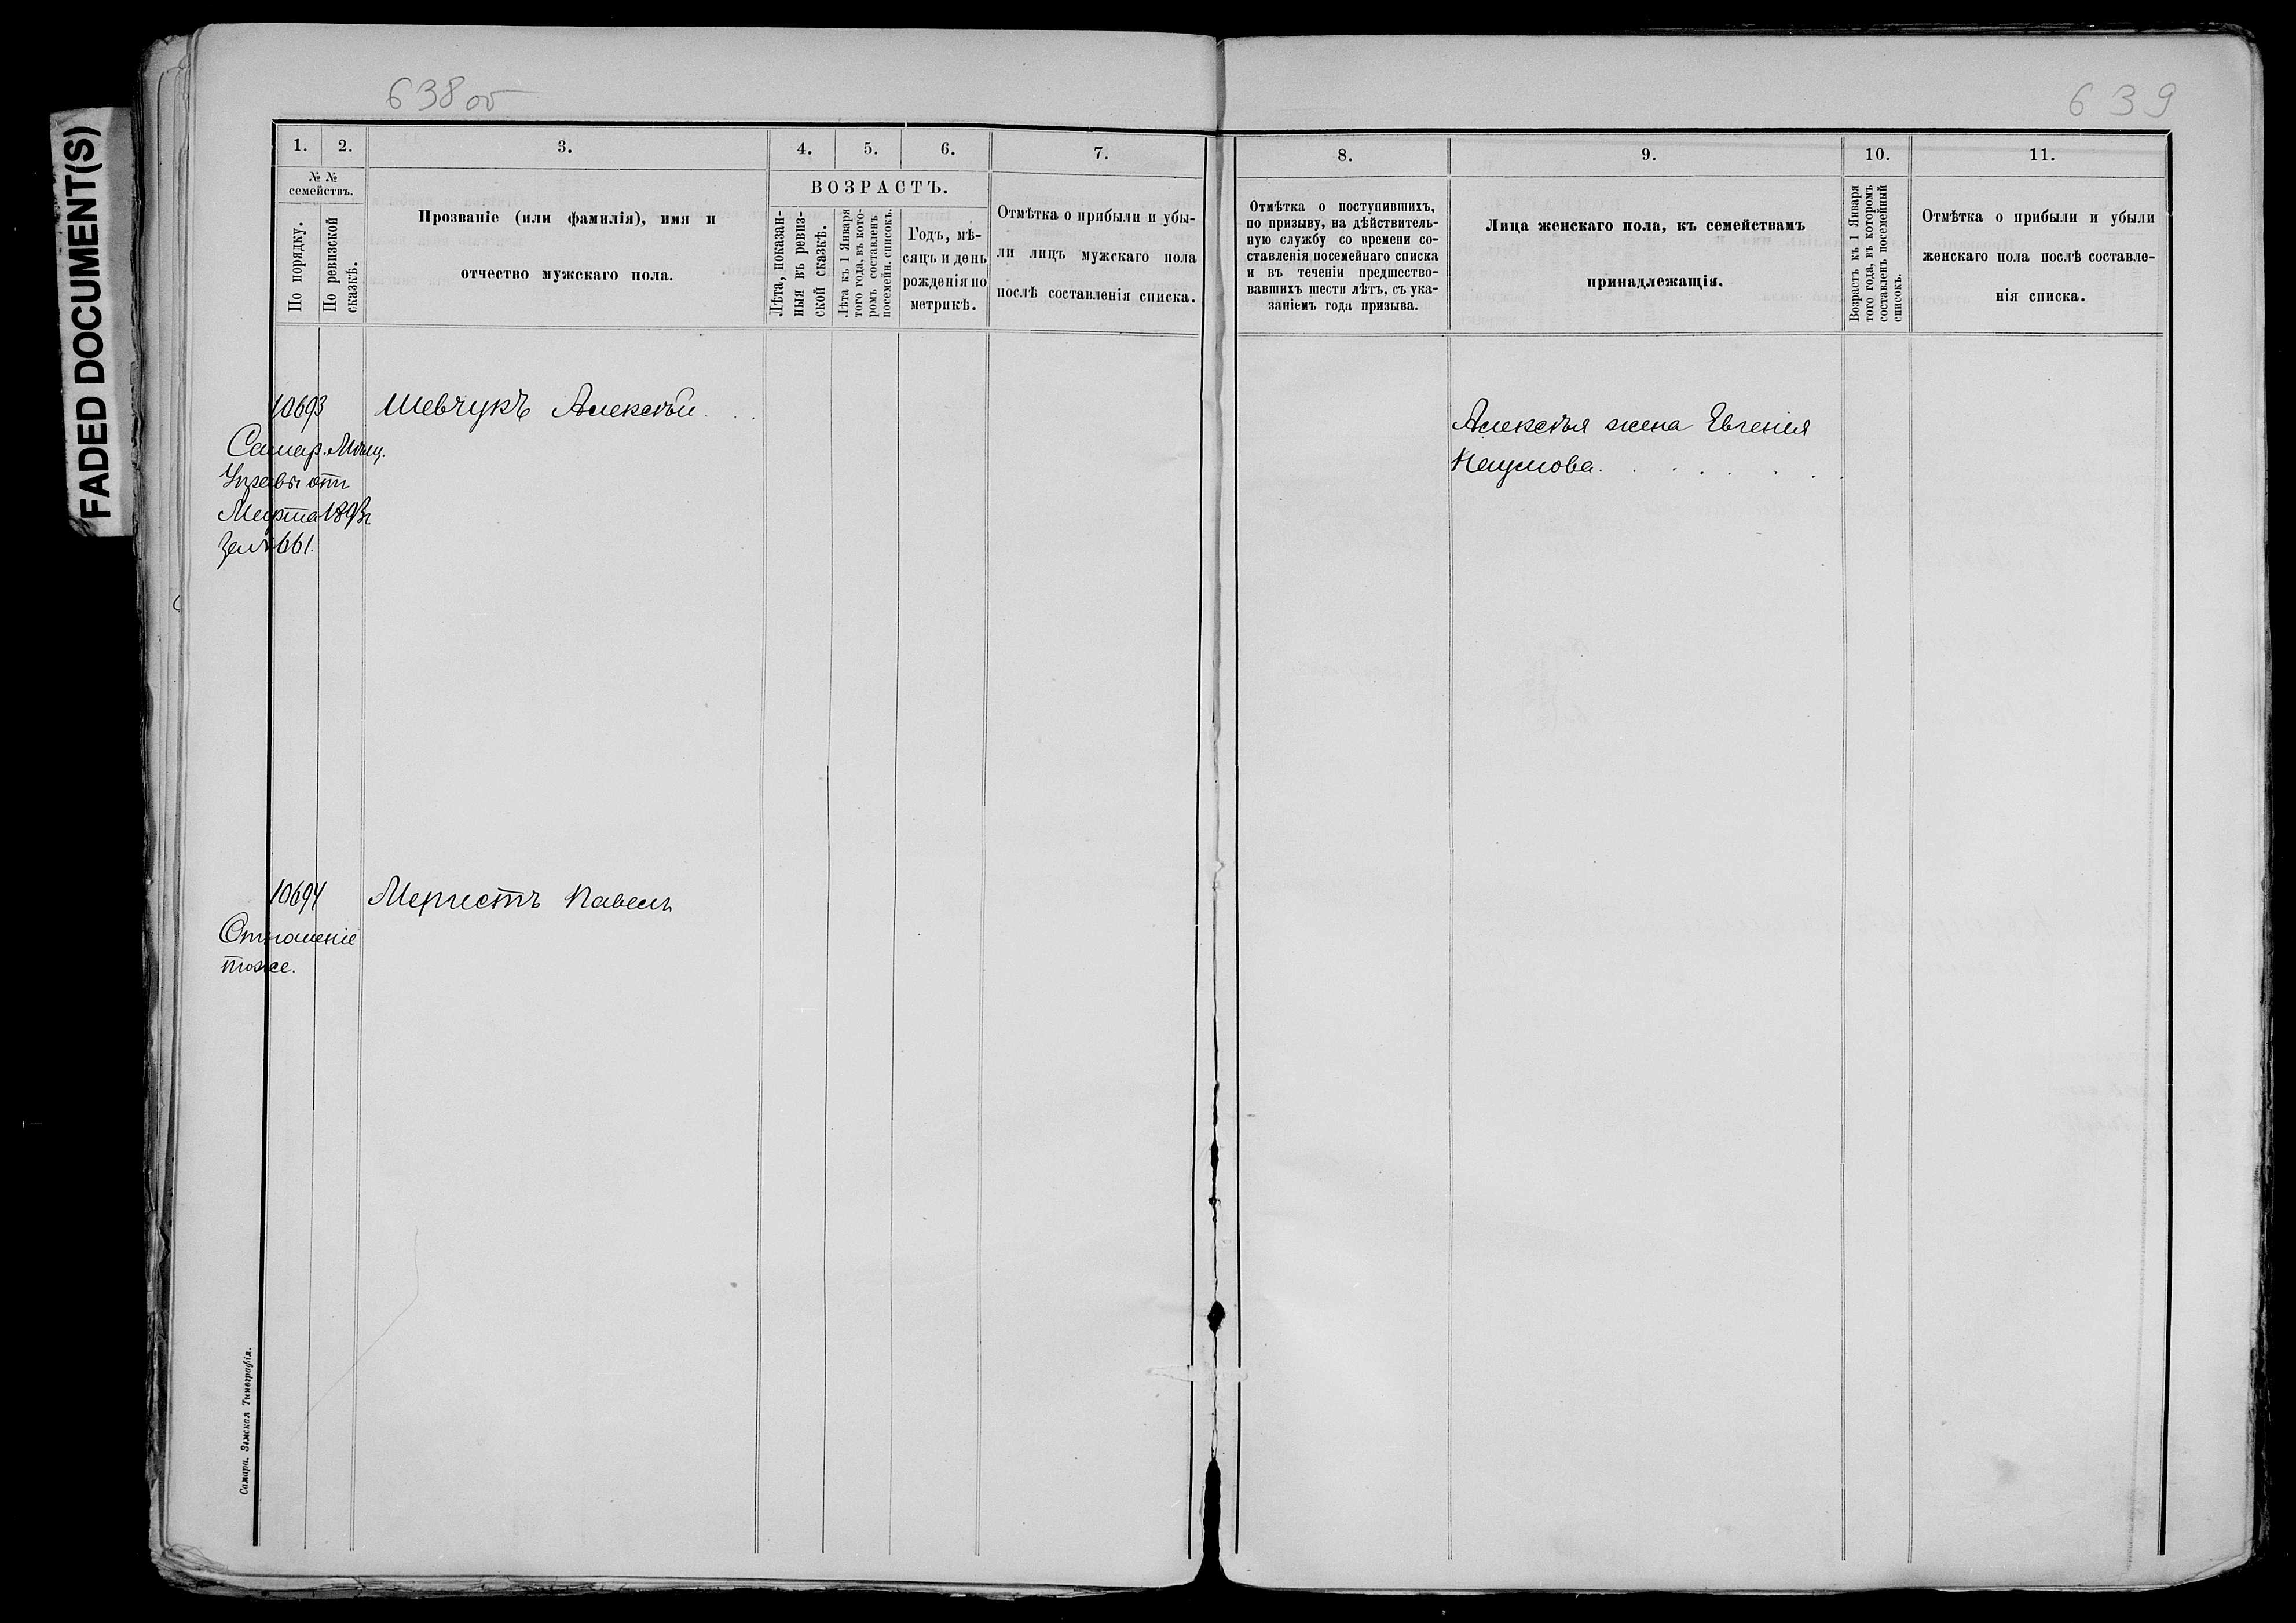 FADED DOCUMENT(S)
638 об
639
1.
2.
3.
4.
5.
6.
7.
№ №
семействъ.
По порядку.
По ревизской
сказкѣ.
Прозваніе (или фамилія), имя и
отчество мужскаго пола.
ВОЗРАСТЪ.
Лѣта, показан-
ныя въ ревиз-
ской сказкѣ.
Лѣта къ 1 Января
того года, въ кото-
ромъ составленъ
посемейн. списокъ.
Годъ, мѣ-
сяцъ и день
рожденія по
метрикѣ.
Отмѣтка о прибыли и убы-
ли лицъ мужскаго пола
послѣ составленія списка.
8.
9.
10.
11.
Отмѣтка о поступившихъ,
по призыву, на дѣйствитель-
ную службу со времени со-
ставленія посемейнаго списка
и въ теченіи предшество-
вавшихъ шести лѣтъ, съ ука-
заніемъ года призыва.
Лица женскаго пола, къ семействамъ
принадлежащія.
Возрастъ къ 1 Января
того года, въ которомъ
составленъ посемейный
списокъ.
Отмѣтка о прибыли и убыли
женскаго пола послѣ составле-
нія списка.
10693 Шевчукъ Алексѣй . .
Самар. Мѣщ.
Управы отъ
Марта 1893г
за № 661.
Алексѣя жена Евгенія
Наумова. . . . . . .
10694 Меристъ Павелъ
Отношеніе
тоже.
Самара. Земская Типографія.